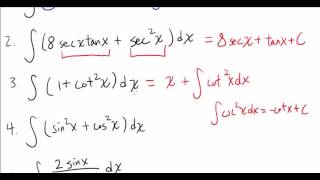 2. ∫(8 secx tanx + sec²x)dx = 8 secx + tanx + C
3. ∫(1 + cot²x)dx = x + ∫cot²x dx
∫csc²x dx = -cotx + C
4. ∫(sin²x + cos²x)dx
∫ 2 sinx dx